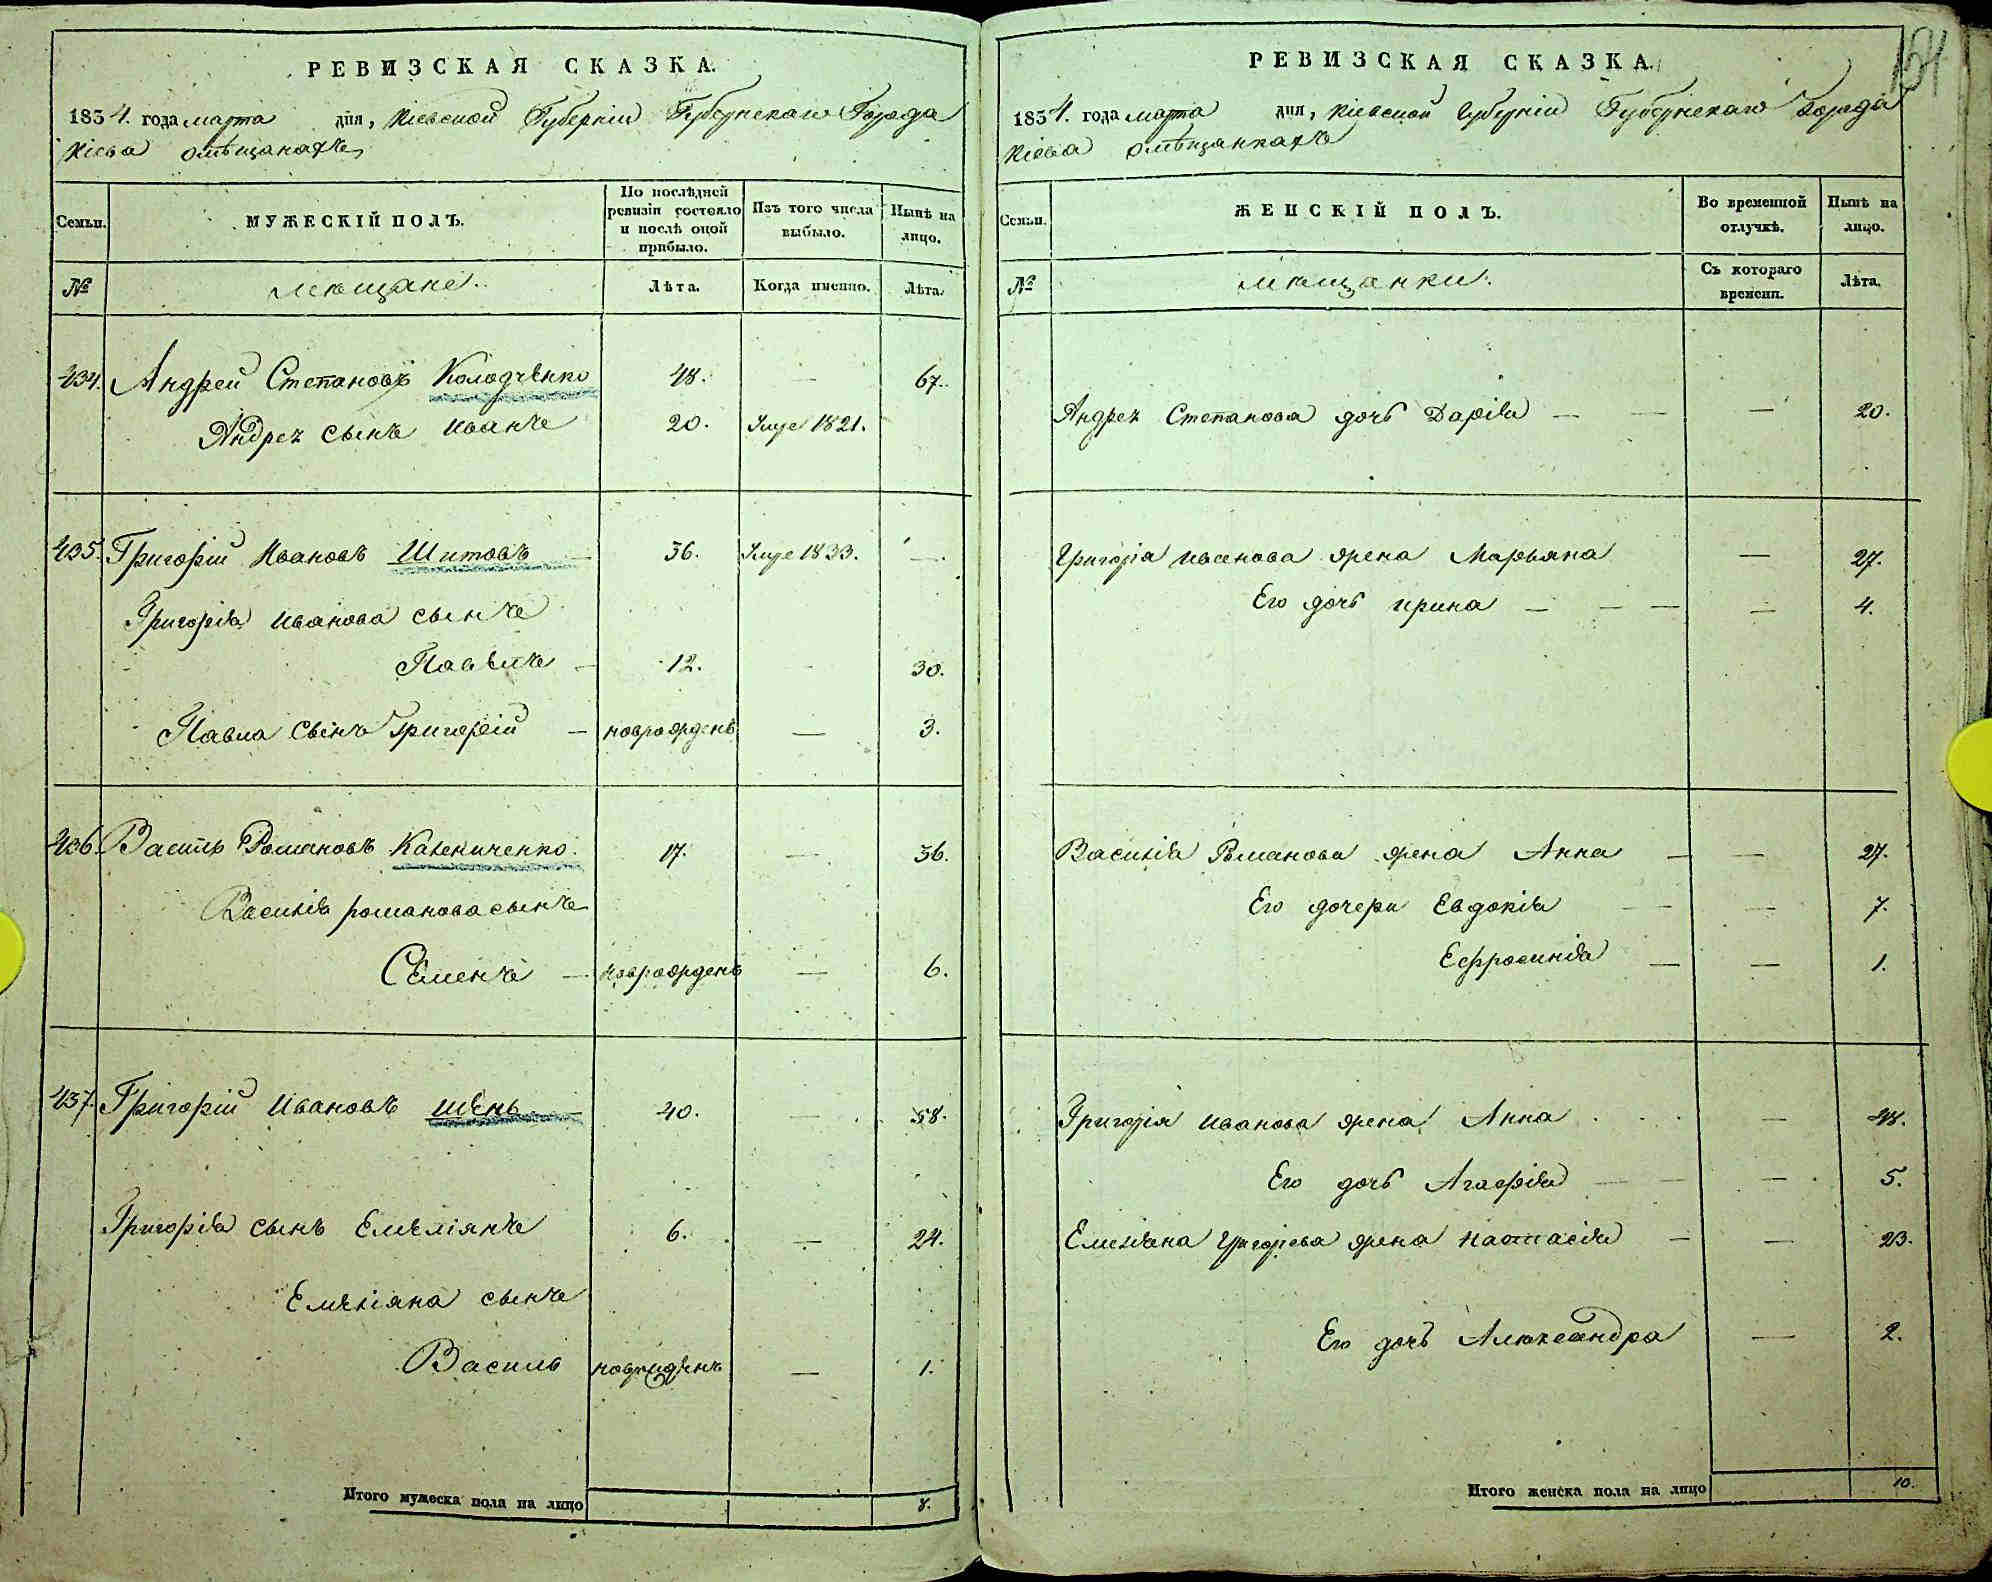 РЕВИЗСКАЯ СКАЗКА.
1834. года марта дня, Кіевской Губерніи Губернскаго Города
Кіева омѣщанахъ
Семьи.
МУЖЕСКІЙ ПОЛЪ.
По послѣдней ревизіи состояло и послѣ оной прибыло.
Изъ того числа выбыло.
Нынѣ на лицо.
№
мѣщане.
Лѣта.
Когда именно.
Лѣта.
434. Андрей Степановъ Колодченко 48. — 67.
Андрея сынъ Иванъ 20. 1821.
435. Григорій Ивановъ Шитовъ — 36. 1833. —
Григорія Иванова сынъ
Павелъ — 12. — 30.
Павла сынъ Григорій — новрожденъ — 3.
436. Василь Романовъ 17. — 36.
Василія романова сынъ
Семенъ — новрожденъ — 6.
437. Григорій Ивановъ Шень — 40. — 58.
Григорія сынъ Емеліянъ 6. — 24.
Емеліяна сынъ
Василь новрожденъ — 1.
Итого мужеска пола на лицо 8.
151
РЕВИЗСКАЯ СКАЗКА.
1834. года марта дня, Кіевской Губерніи Губернскаго Города
Кіева омѣщанкахъ
Семьи.
ЖЕНСКІЙ ПОЛЪ.
Во временной отлучкѣ.
Нынѣ на лицо.
№
мѣщанки.
Съ котораго времени.
Лѣта.
Андрея Степанова дочь Дарія — — — 20.
Григорія Иванова жена Марьяна — 27.
Его дочь Ирина — — — — 4.
Василія Романова жена Анна — — 27.
Его дочери Евдокія — — — 7.
Ефросинія — — 1.
Григорія Иванова жена Анна — 48.
Его дочь Агафія — — — 5.
Емеліяна Григорьева жена Настасія — — 23.
Его дочь Александра — 2.
Итого женска пола на лицо 10.